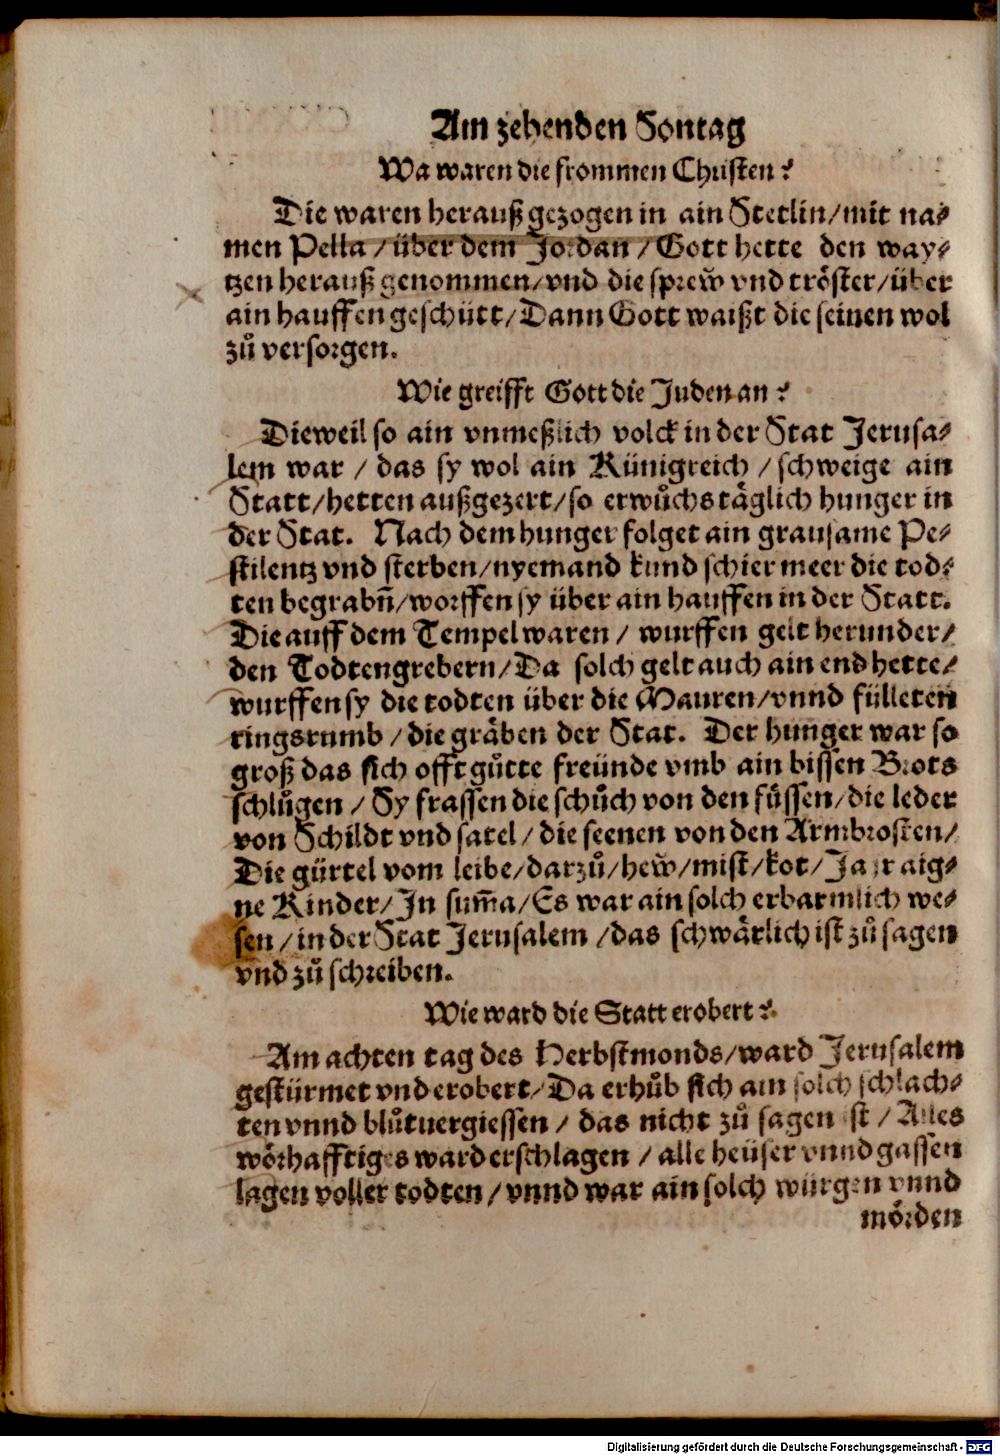 Am zehenden Sontag
Wa waren die frommen Christen?
Die waren herauß gezogen in ain Stetlin/mit na⸗
men Pella/über dem Jordan/Gott hette den way⸗
tzen herauß genommen/vnd die sprew̃ vnd tröster/über
ain hauffen geschütt/Dann Gott waißt die seinen wol
zů versorgen.
Wie greifft Gott die Juden an?
Dieweil so ain vnmeßlich volck in der Stat Jerusa⸗
lem war/das sy wol ain Künigreich/schweige ain
Statt/hetten außgezert/so erwůchs täglich hunger in
der Stat. Nach dem hunger folget ain grausame Pe⸗
stilentz vnd sterben/nyemand kund schier meer die tod⸗
ten begrabñ/worffen sy über ain hauffen in der Statt.
Die auff dem Tempel waren/wurffen gelt herunder/
den Todtengrebern/Da solch gelt auch ain end hette/
wurffen sy die todten über die Mauren/vnnd fülleten
ringsrumb/die gräben der Stat. Der hunger war so
groß das sich offt gůtte freünde vmb ain bissen Brots
schlůgen/Sy frassen die schůch von den füssen/die leder
von Schildt vnd satel/die seenen von den Armbrosten/
Die gürtel vom leibe/darzů/hew̃/mist/kot/Ja jr aig⸗
ne Kinder/In sum̃a/Es war ain solch erbarmlich we⸗
sen/in der Stat Jerusalem/das schwärlich ist zů sagen
vnd zů schreiben.
Wie ward die Statt erobert?
Am achten tag des Herbstmonds/ward Jerusalem
gestürmet vnd erobert/Da erhůb sich ain solch schlach⸗
ten vnnd blůtuergiessen/das nicht zů sagen ist/Alles
wörhafftiges ward erschlagen/alle heüser vnnd gassen
lagen voller todten/vnnd war ain solch würgen vnnd
mörden
Digitalisierung gefördert durch die Deutsche Forschungsgemeinschaft - DFG